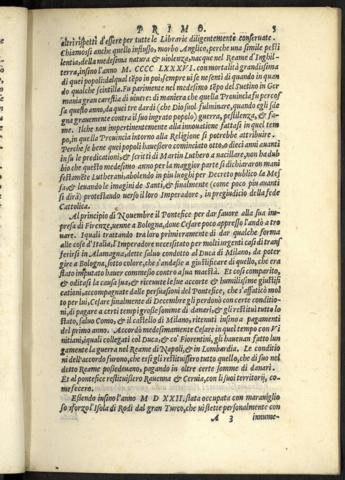 PRIMO. 5
altri rispetti d'essere per tutte le Librarie diligentemente conseruate.
Chiamosi anche quello influsso, morbo Anglico, perche una simile pesti
lentia, della medesima natura & uiolenza, nacque nel Reame d'Inghil-
terra, insino l'anno M. CCCC LXXXVI. con mortalità grandissima
di que popoli: dal qual tẽpo in poi, sempre ui se ne sentì di quando in quan
do qualche scintilla. Fu parimente nel medesimo tẽpo del Suetino in Ger
mania gran carestia di uiuere: di maniera che quella Prouincia fu percos
sa questo anno, da quei tre dardi (che Dio suol fulminare, quando egli sde
gna grauemente contra il suo ingrato popolo) guerra, pestilenza, & fa-
me. Ilche non impertinentemente alla innouatione fattasi in quel tem
po, in quella Prouincia intorno alla Religione si potrebbe attribuire.
Perche se bene quei popoli hauessero cominciato otto, o dieci anni auanti
in su le predicationi, & scritti di Martin Luthero a uacillare, non ha dub
bio che questo medesimo anno per la maggior parte si dichiararon mani
festamẽte Lutherani, abolendo in piu luoghi per Decreto publico la Mes
sa, & leuando le imagini de Santi, & finalmente (come poco piu auanti
si dirà) protestando uerso il loro Imperadore, in pregiudicio della fede
Catholica.
Al principio di Nouembre il Pontefice per dar fauore alla sua im
presa di Firenze, uenne a Bologna, done Cesare poco appresso l'andò a tro
uare. Iquali trattando tra loro primieramente di dar qualche forma
alle cose d'Italia, l'Imperadore necessitato per molti urgenti casi di transf
ferirsi in Alamagna, dette saluo condotto al Duca di Milano, da poter
gire a Bologna, sotto colore, che s'andasse a giustificare di quello, che era
stato imputato hauer commesso contro a sua maestà. Et cosi comparito,
& oditasi la causa sua, & ritenute le sue accorte & humilissime giustifi
cationi, accompagnate dalle persuasioni del Pontefice, che s'affaticò mol
to per lui, Cesare finalmente di Decembre gli perdonò con certe conditio
ni, di pagare a certi tempi grosse somme di danari, & gli restituì tutto lo
stato, saluo Como, & il castello di Milano, ritenuti insino a pagamenti
del primo anno. Accordò medesimamente Cesare in quel tempo con Vi
nitiani, iquali collegati col Duca, & co' Fiorentini, gli haueuan fatto lun
gamente la guerra nel Reame di Napoli, & in Lombardia. Le conditio
ni dell'accordo furono, che essi gli restituissero tutto quello, che di suo nel
detto Reame possedeuano, pagando in oltre certe somme di danari.
Et al pontefice restituissero Rauenna & Ceruia, con li suoi territorij, co-
me fecero.
Essendo insino l'anno M D XXII. stata occupata con marauiglio
so sforzo l'Isola di Rodi dal gran Turco, che ui stette personalmente con
A 3 innume-